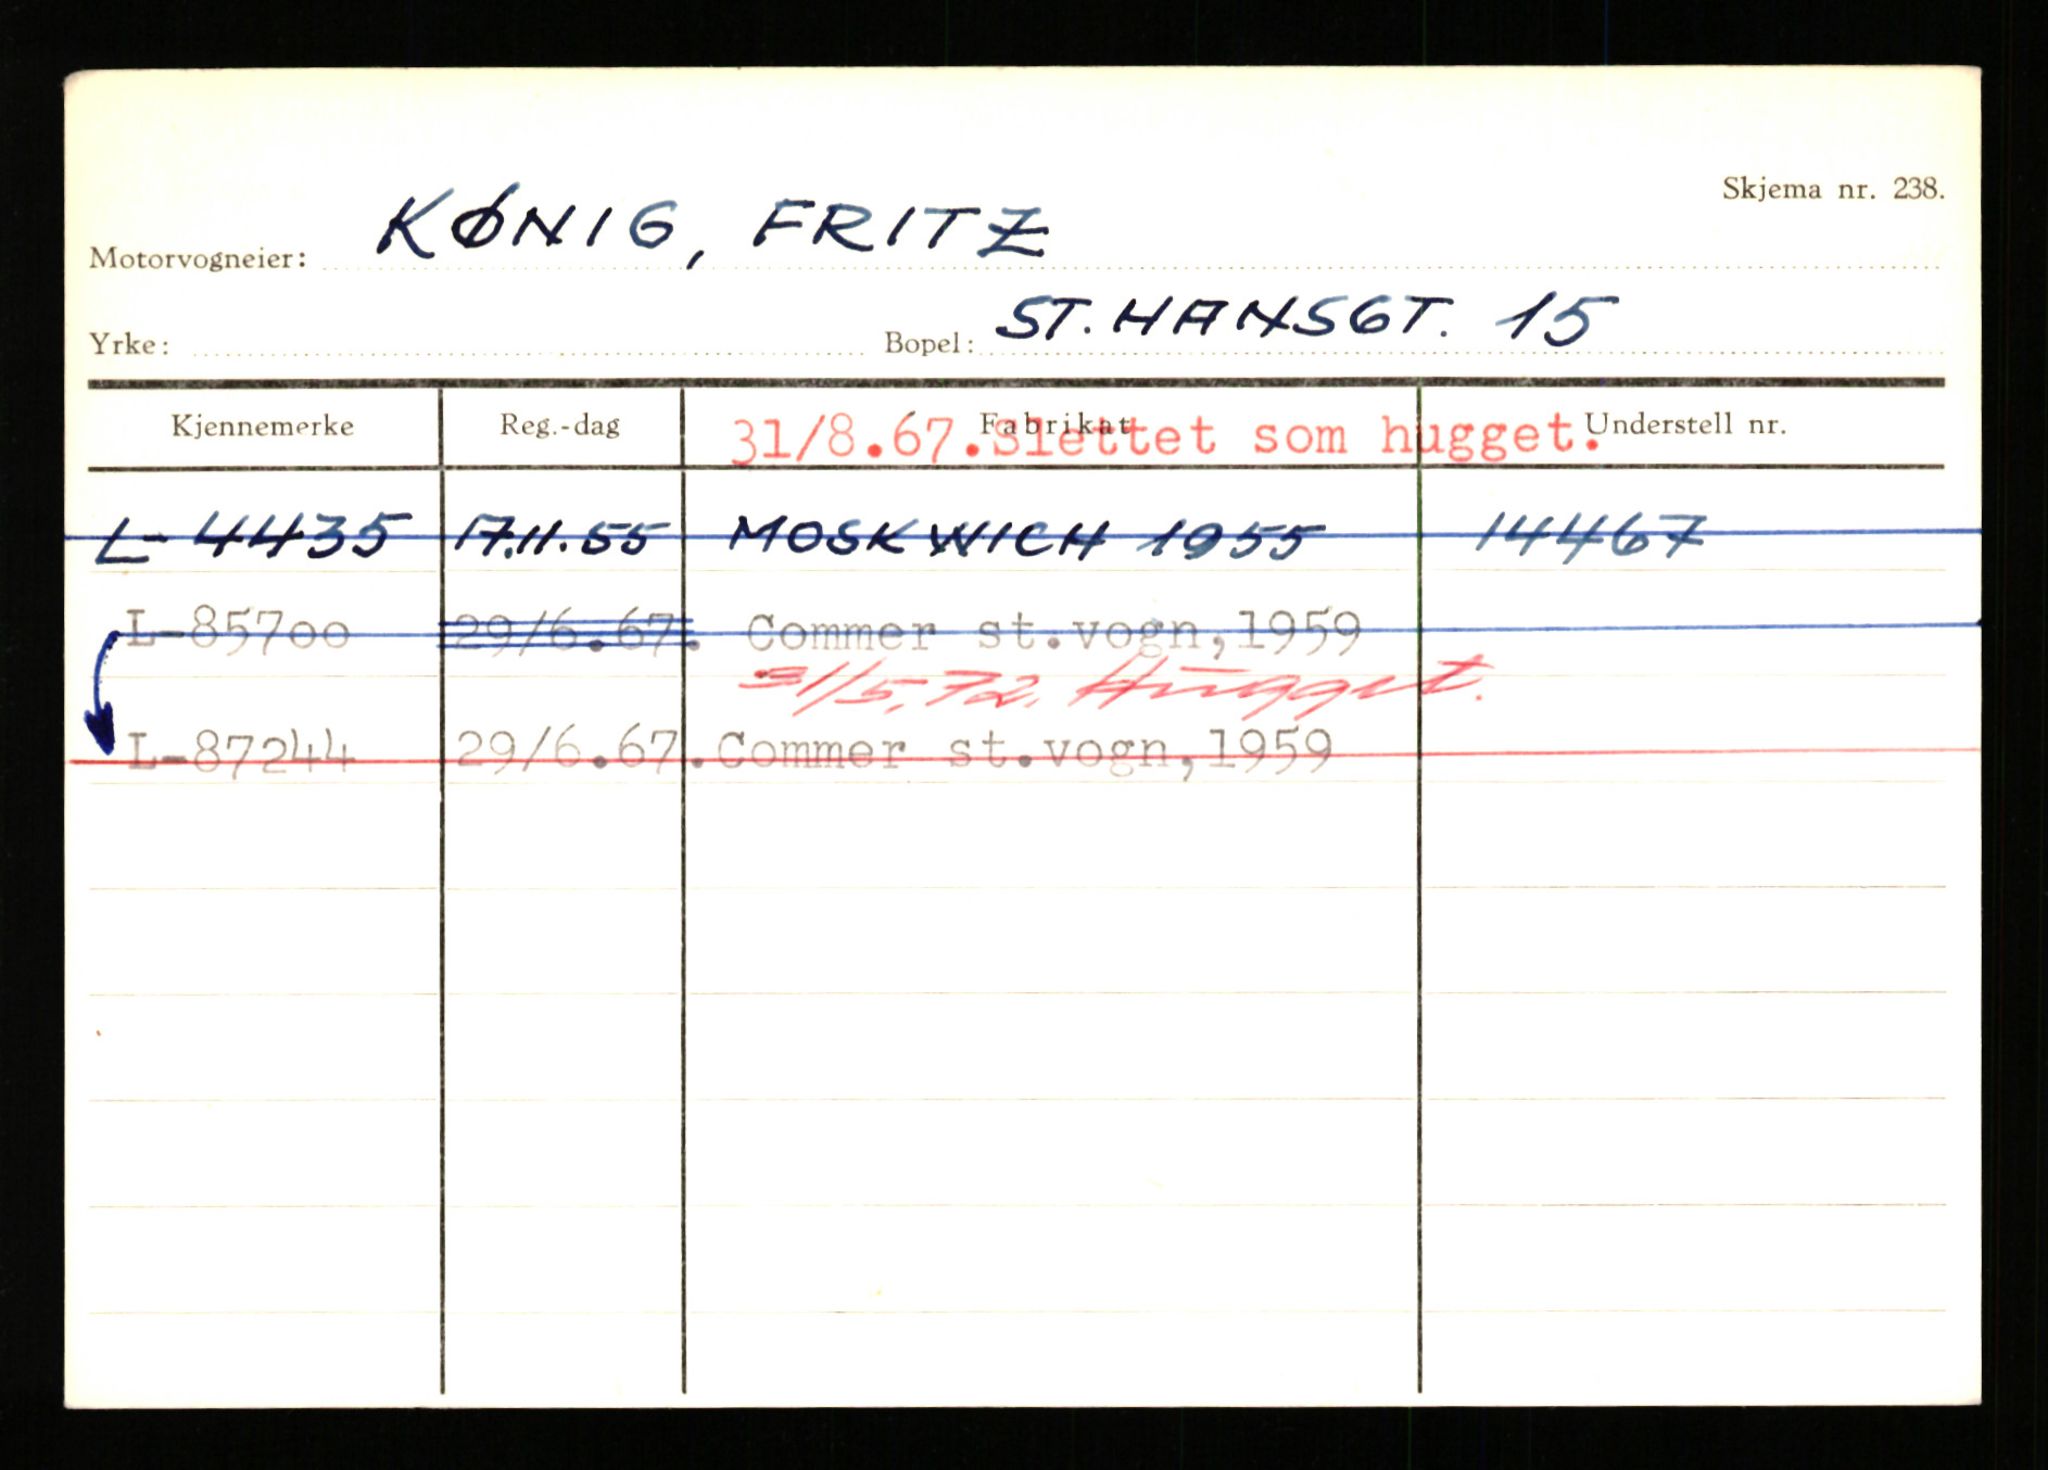 Skjema nr. 238.
Motorvogneier: KØNIG, FRITZ
Yrke: Bopel: ST. HANSGT. 15
Kjennemerke Reg.-dag Fabrikat Understell nr.
31/8.67.Slettet som hugget.
L-4435 17.11.55 MOSKWICH 1955 14467
L-85700 29/6.67. Commer st.vogn,1959
31/5.72. Hugget.
L-87244 29/6.67. Commer st.vogn,1959